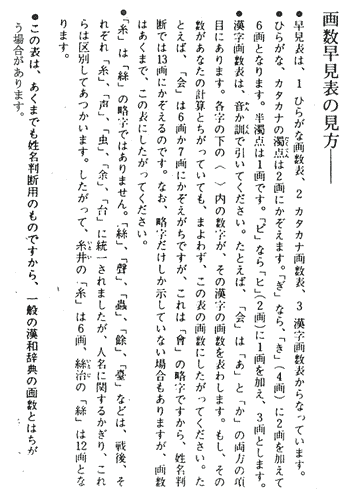 画数早見表の見方――
●早見表は、1 ひらがな画数表、2 カタカナ画数表、3 漢字画数表からなっています。
●ひらがな、カタカナの濁点は2画にかぞえます。「ぎ」なら、「き」(4画)に2画を加えて
6画となります。半濁点は1画です。「ピ」なら「ヒ」(2画)に1画を加え、3画とします。
●漢字画数表は、音か訓で引いてください。たとえば、「会」は「あ」と「か」の両方の項
目にあります。各字の下の〈 〉内の数字が、その漢字の画数を表わします。もし、その
数があなたの計算とちがっていても、まよわず、この表の画数にしたがってください。た
とえば、「会」は6画か7画にかぞえがちですが、これは「會」の略字ですから、姓名判
断では13画にかぞえるのです。なお、略字だけしか示していない場合もありますが、画数
はあくまで、この表にしたがってください。
●「糸」は「絲」の略字ではありません。「絲」、「聲」、「蟲」、「餘」、「臺」などは、戦後、そ
れぞれ「糸」、「声」、「虫」、「余」、「台」に統一されましたが、人名に関するかぎり、これ
らは区別してあつかいます。したがって、糸井の「糸」は6画、絲治の「絲」は12画とな
ります。
●この表は、あくまでも姓名判断用のものですから、一般の漢和辞典の画数とはちが
う場合があります。